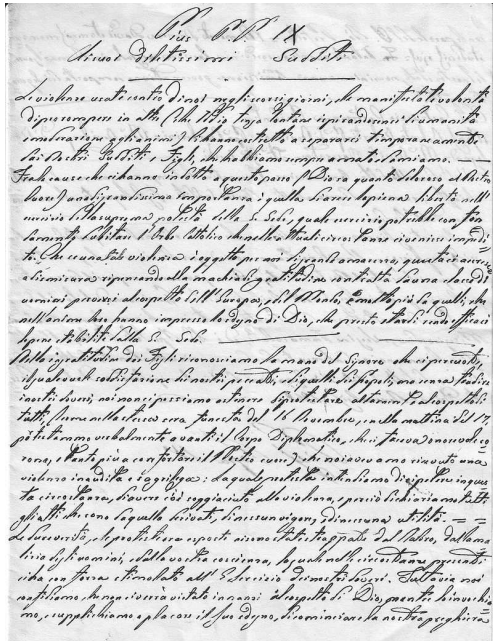 Pius P.P. IX
Ai suoi dilettissimi Sudditi
Le violenze usate contro di noi negli scorsi giorni, e le manifestate volontà
di prorompere in altre (che Iddio tenga lontane ispirando sensi d'umanità
e moderazione negli animi) ci hanno costretto a separarci temporaneamente
dai Nostri Sudditi e Figli, che abbiamo sempre amato ed amiamo.
Fra le cause che ci hanno indotto a questo passo, Dio sa quanto doloroso al Nostro
cuore, una di grandissima importanza è quella di avere la piena libertà nell'
esercizio della suprema potestà della S. Sede, quale esercizio potrebbe con fon
damento dubitare l'Orbe Cattolico che nelle attuali circostanze ci venisse impedi
to. Che se una tale violenza è oggetto per noi di grande amarezza, questa si accresce
a dismisura ripensando alla macchia d'ingratitudine contratta da una classe di
uomini perversi al cospetto dell'Europa, e del Mondo, e molto più da quella, che
nelle anime loro ha impresso lo sdegno di Dio, che presto o tardi rende efficaci
le pene stabilite dalla S. Sede.
Nella ingratitudine dei Figli riconosciamo la mano del Signore che ci percuote,
il quale vuole soddisfazione dei nostri peccati, e di quelli dei popoli, ma senza tradire
i nostri doveri, noi non ci possiamo astenere di protestare altamente al cospetto di
tutti, (come nella stessa sera funesta del 16 Novembre, e nella mattina del 17
protestammo verbalmente avanti il Corpo Diplomatico, che ci faceva onorevole co
rona, e tanto giovò a confortare il Nostro cuore) che noi avevamo ricevuto una
violenza inaudita e sacrilega: La quale protesta intendiamo di ripetere in ques
ta circostanza, di avere cioè soggiaciuto alla violenza, e perciò dichiariamo tutti
gli atti che sono da quella derivati, di nessun vigore, e di nessuna utilità.
Le dure verità, e le proteste ora esposte ci sono state strappate dal labbro, dalla ma
lizia degli uomini, e dalla nostra coscienza, la quale nelle circostanze presenti
ci ha con forza stimolato all'Esercizio dei nostri doveri. Tuttavia noi
confidiamo, che non ci verrà vietato innanzi al cospetto di Dio, mentre lo invochia
mo, e supplichiamo a placare il suo sdegno, di cominciare la nostra preghiera